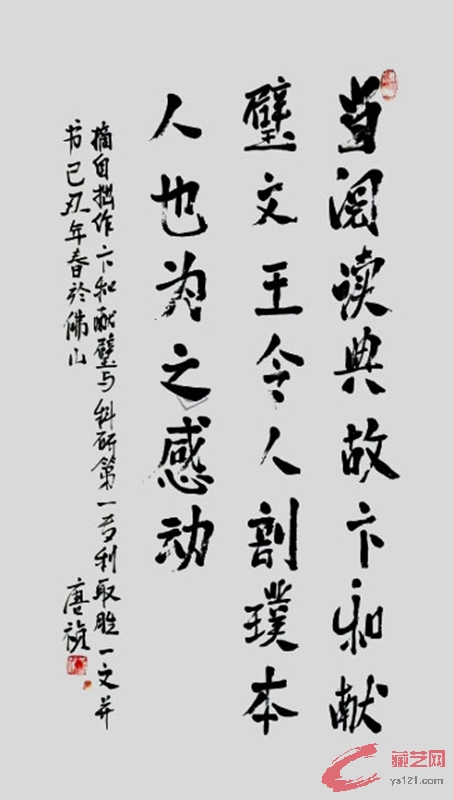 当阅读典故卞和献
璧文王令人剖璞本
人也为之感动
摘自拙作卞和献璧与科研第一专利取胜一文并
书己丑年春于佛山
唐祯
藏艺网
ys121.com